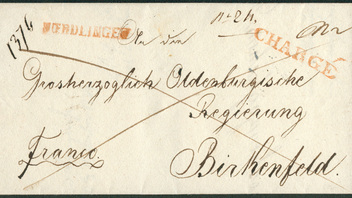 NOERDLINGEN
An die
CHARGÉ
Grosherzoglich Oldenburgische
Regierung
Franco
Birkenfeld.